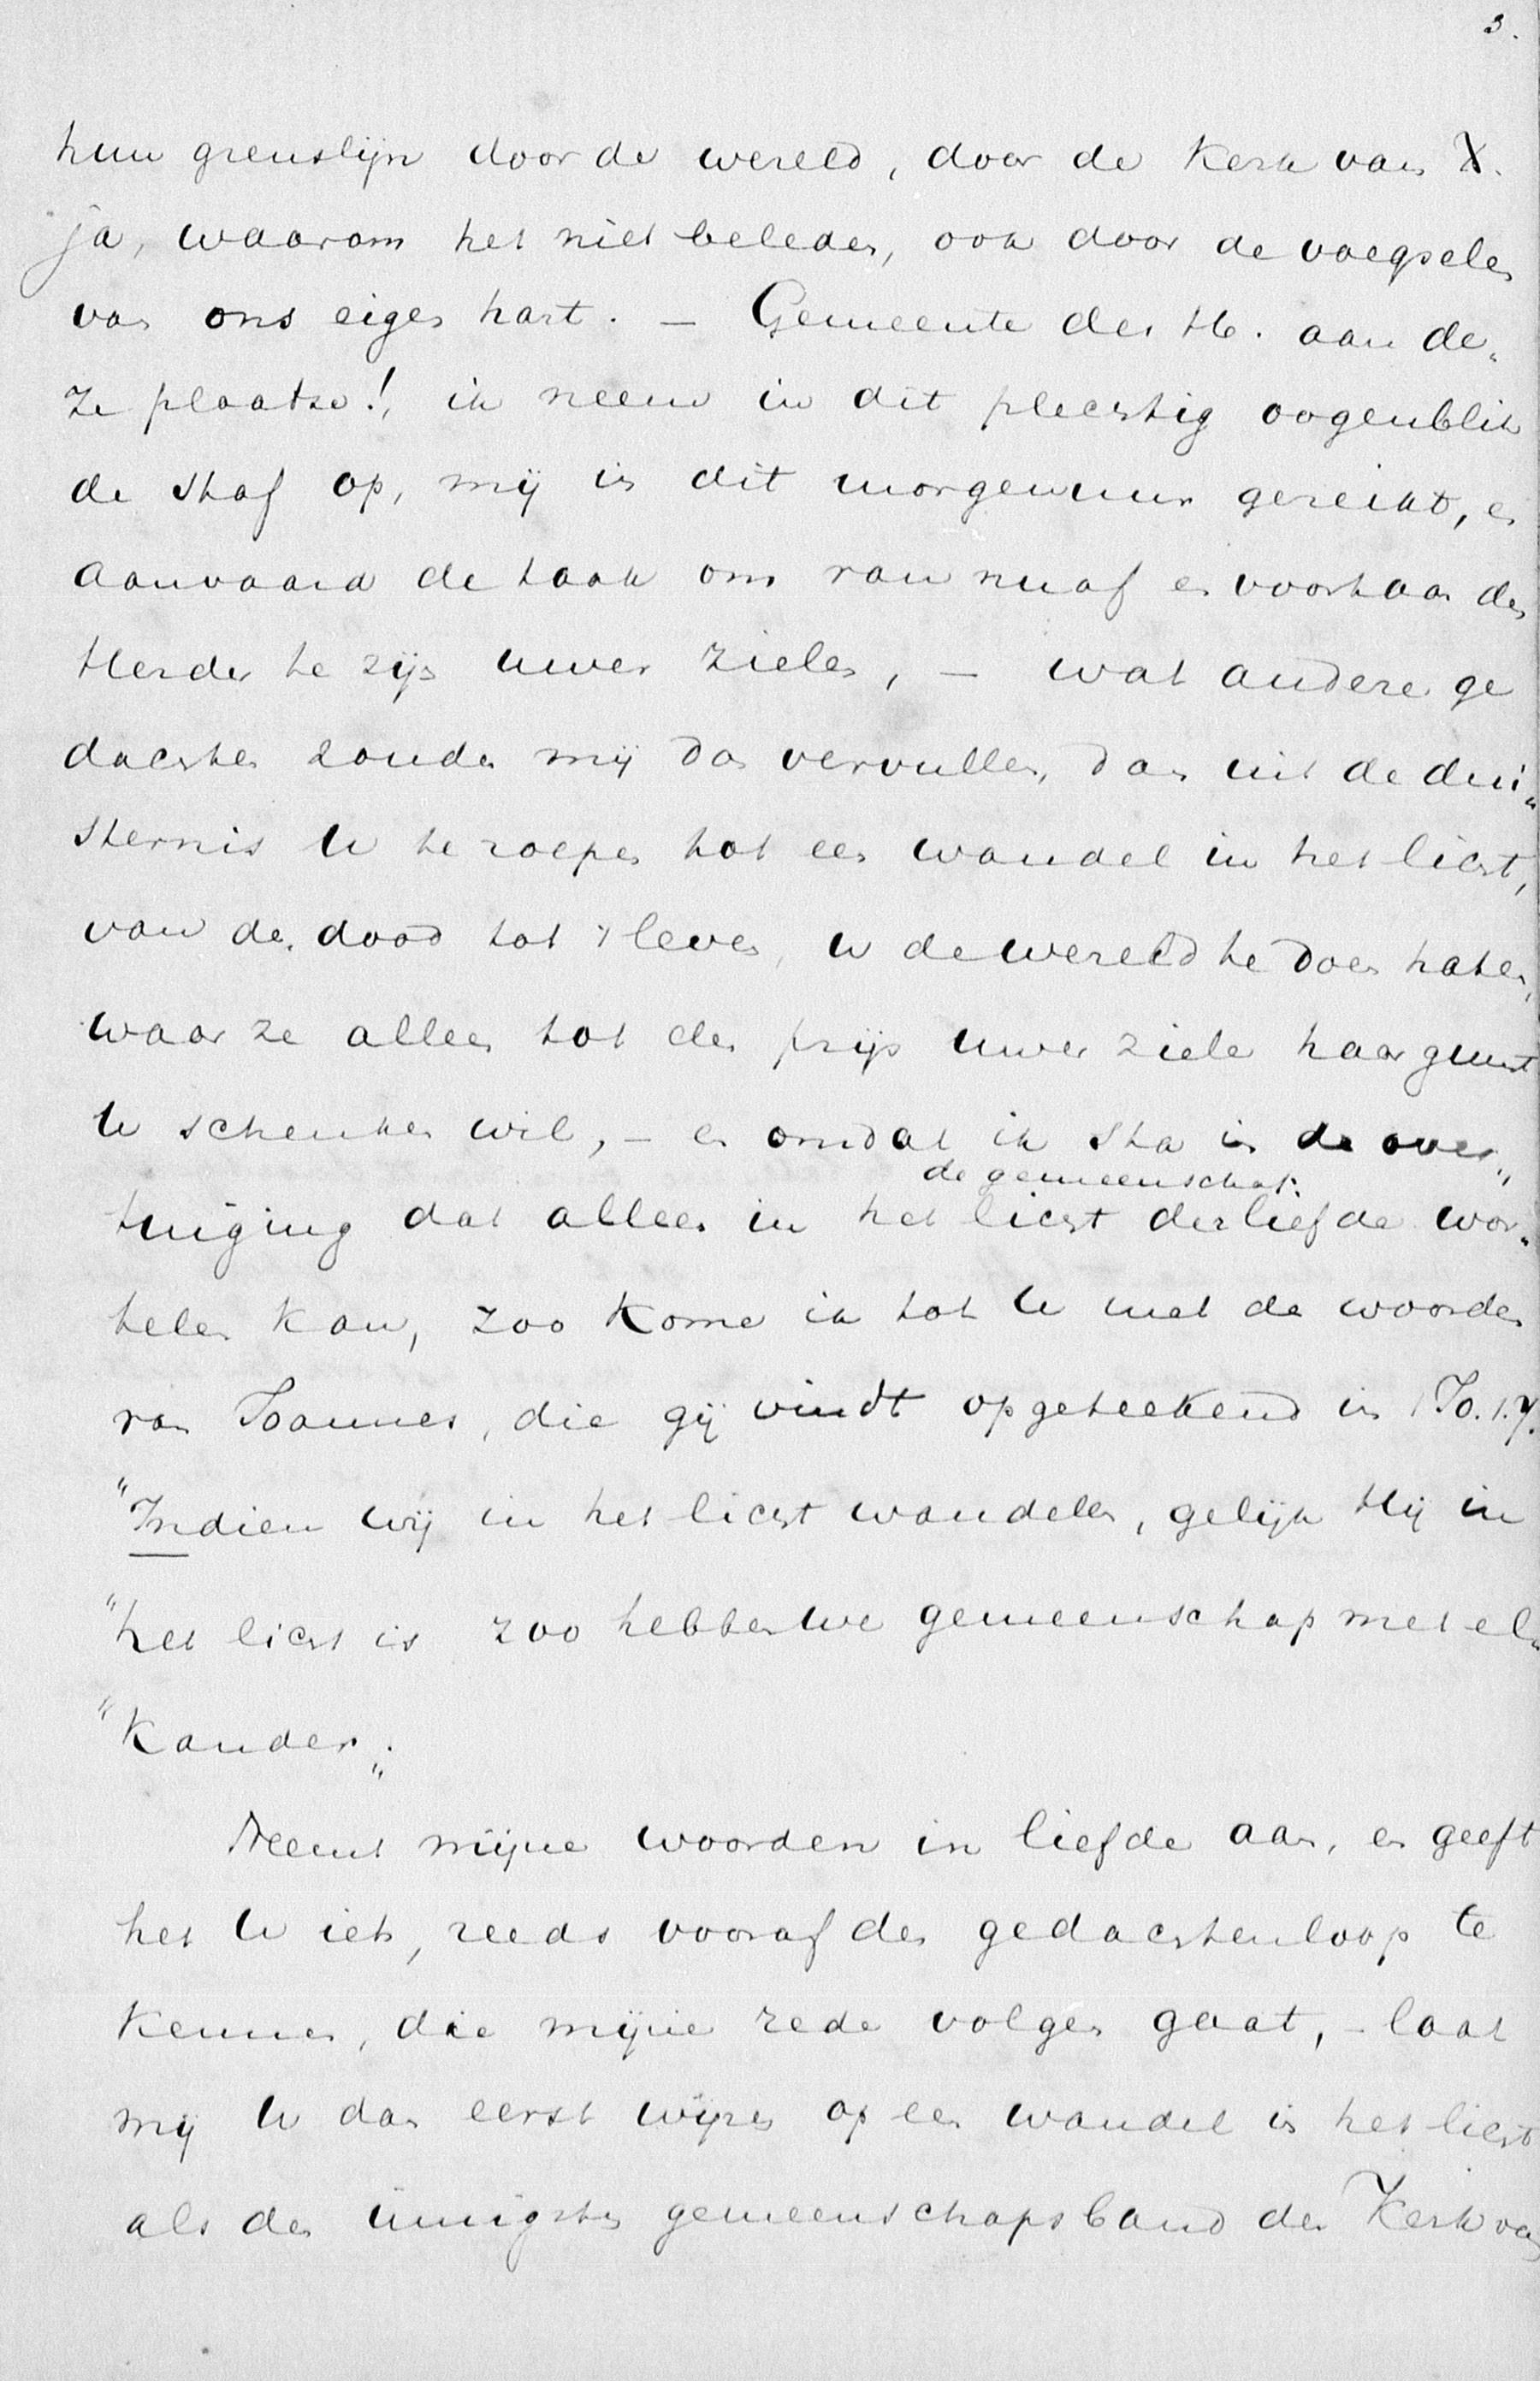 3.
hun grenslijn door de wereld, door de Kerk van X.
ja, waarom het niet beleden, ook door de voegselen
van ons eigen hart. – Gemeente des H. aan de„
ze plaatse!, ik neem in dit plechtig oogenblik
de staf op, mij in dit morgenuur gereikt, en
aanvaard de taak om van nu af en voortaan den
Herder te zijn uwer zielen, – wat andere ge
dachten zouden mij dan vervullen, dan uit de dui„
sternis U te roepen tot een wandel in het licht,
van den dood tot 't leven, U de wereld te doen haten,
waar ze alleen tot den prijs uwer ziele haar gunst
U schenken wil, – en omdat ik sta in de over„
de gemeenschap
tuiging dat alleen in het licht der liefde wor„
telen kan, zoo kome ik tot U met de woorden
van Joannes, die gij vindt opgeteekend in 1 Jo. 1.7.
"Indien wij in het licht wandelen, gelijk Hij in
"het licht is zoo hebben we gemeenschap met el„
"kander„.
Neemt mijne woorden in liefde aan, en geeft
het U iets, reeds vooraf den gedachtenloop te
kennen, die mijne rede volgen gaat, – laat
mij U dan eerst wijzen op een wandel in het licht
als den innigsten gemeenschapsband der Kerk van